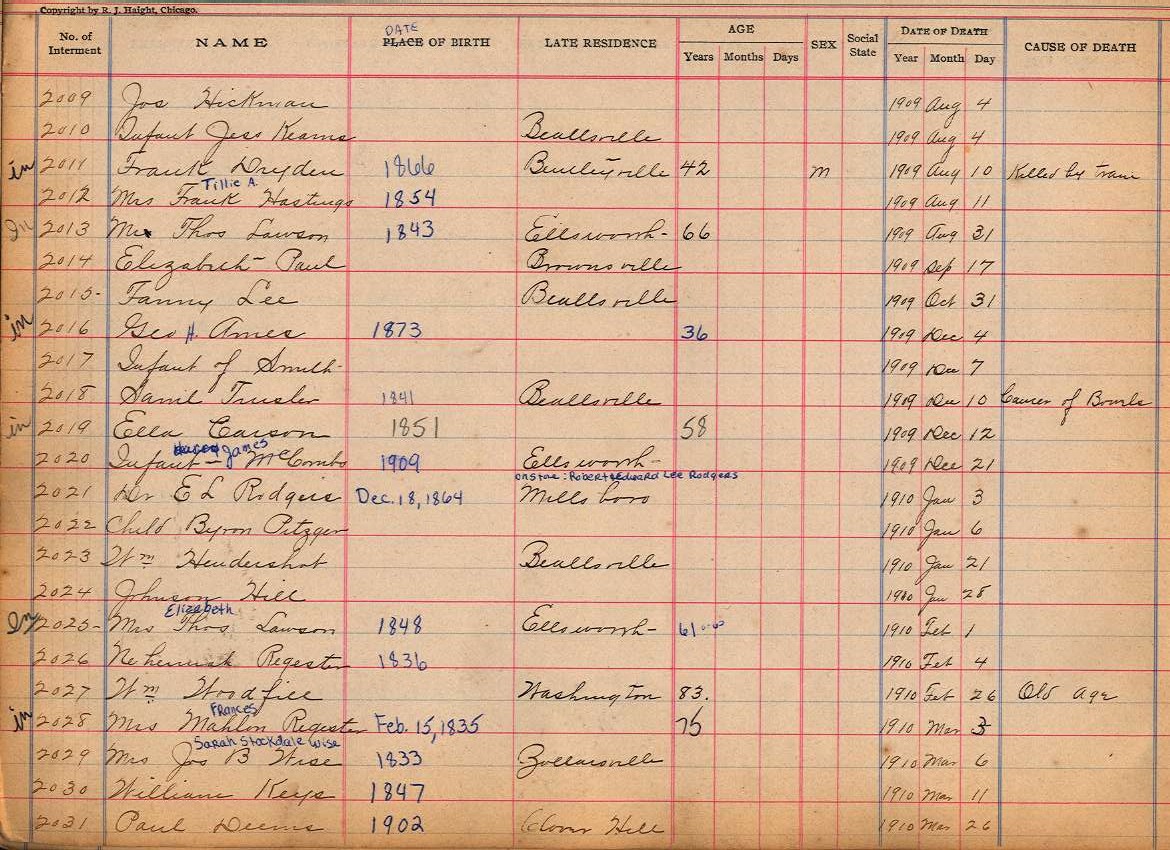 Copyright by R. J. Haight, Chicago.
No. of Interment NAME DATE PLACE OF BIRTH LATE RESIDENCE AGE Years Months Days SEX Social State DATE OF DEATH Year Month Day CAUSE OF DEATH
2009 Jos Hickman 1909 Aug 4
2010 Infant Jess Kearns Beallsville 1909 Aug 4
in 2011 Frank Dryden 1866 Bentleyville 42 m 1909 Aug 10 Killed by train
Tillie A.
2012 Mrs Frank Hastings 1854 1909 Aug 11
In 2013 Mr Thos Lawson 1843 Ellsworth 66 1909 Aug 31
2014 Elizabeth Paul Brownsville 1909 Sep 17
2015 Fanny Lee Beallsville 1909 Oct 31
in 2016 Geo H. Ames 1873 36 1909 Dec 4
2017 Infant of Smith 1909 Dec 7
2018 Saml Trusler 1841 Beallsville 1909 Dec 10 Cancer of Bowels
in 2019 Ella Carson 1851 58 1909 Dec 12
James
2020 Infant McCombs 1909 Ellsworth 1909 Dec 21
on stone: Robert Edward Lee Rodgers
2021 Dr E L Rodgers Dec. 18, 1864 Millsboro 1910 Jan 3
2022 Child Byron Pitzger 1910 Jan 6
2023 Wm Hendershot Beallsville 1910 Jan 21
2024 Johnson Hill 1910 Jan 28
Elizabeth
In 2025 Mrs Thos Lawson 1848 Ellsworth 61 1910 Feb 1
2026 Nehemiah Regester 1836 1910 Feb 4
2027 Wm Woodfill Washington 83. 1910 Feb 26 Old Age
Frances
in 2028 Mrs Mahlon Regester Feb. 15, 1835 75 1910 Mar 3
Sarah Stockdale Wise
2029 Mrs Jos B Wise 1833 Zollarsville 1910 Mar 6
2030 William Keys 1847 1910 Mar 11
2031 Paul Deems 1902 Clover Hill 1910 Mar 26